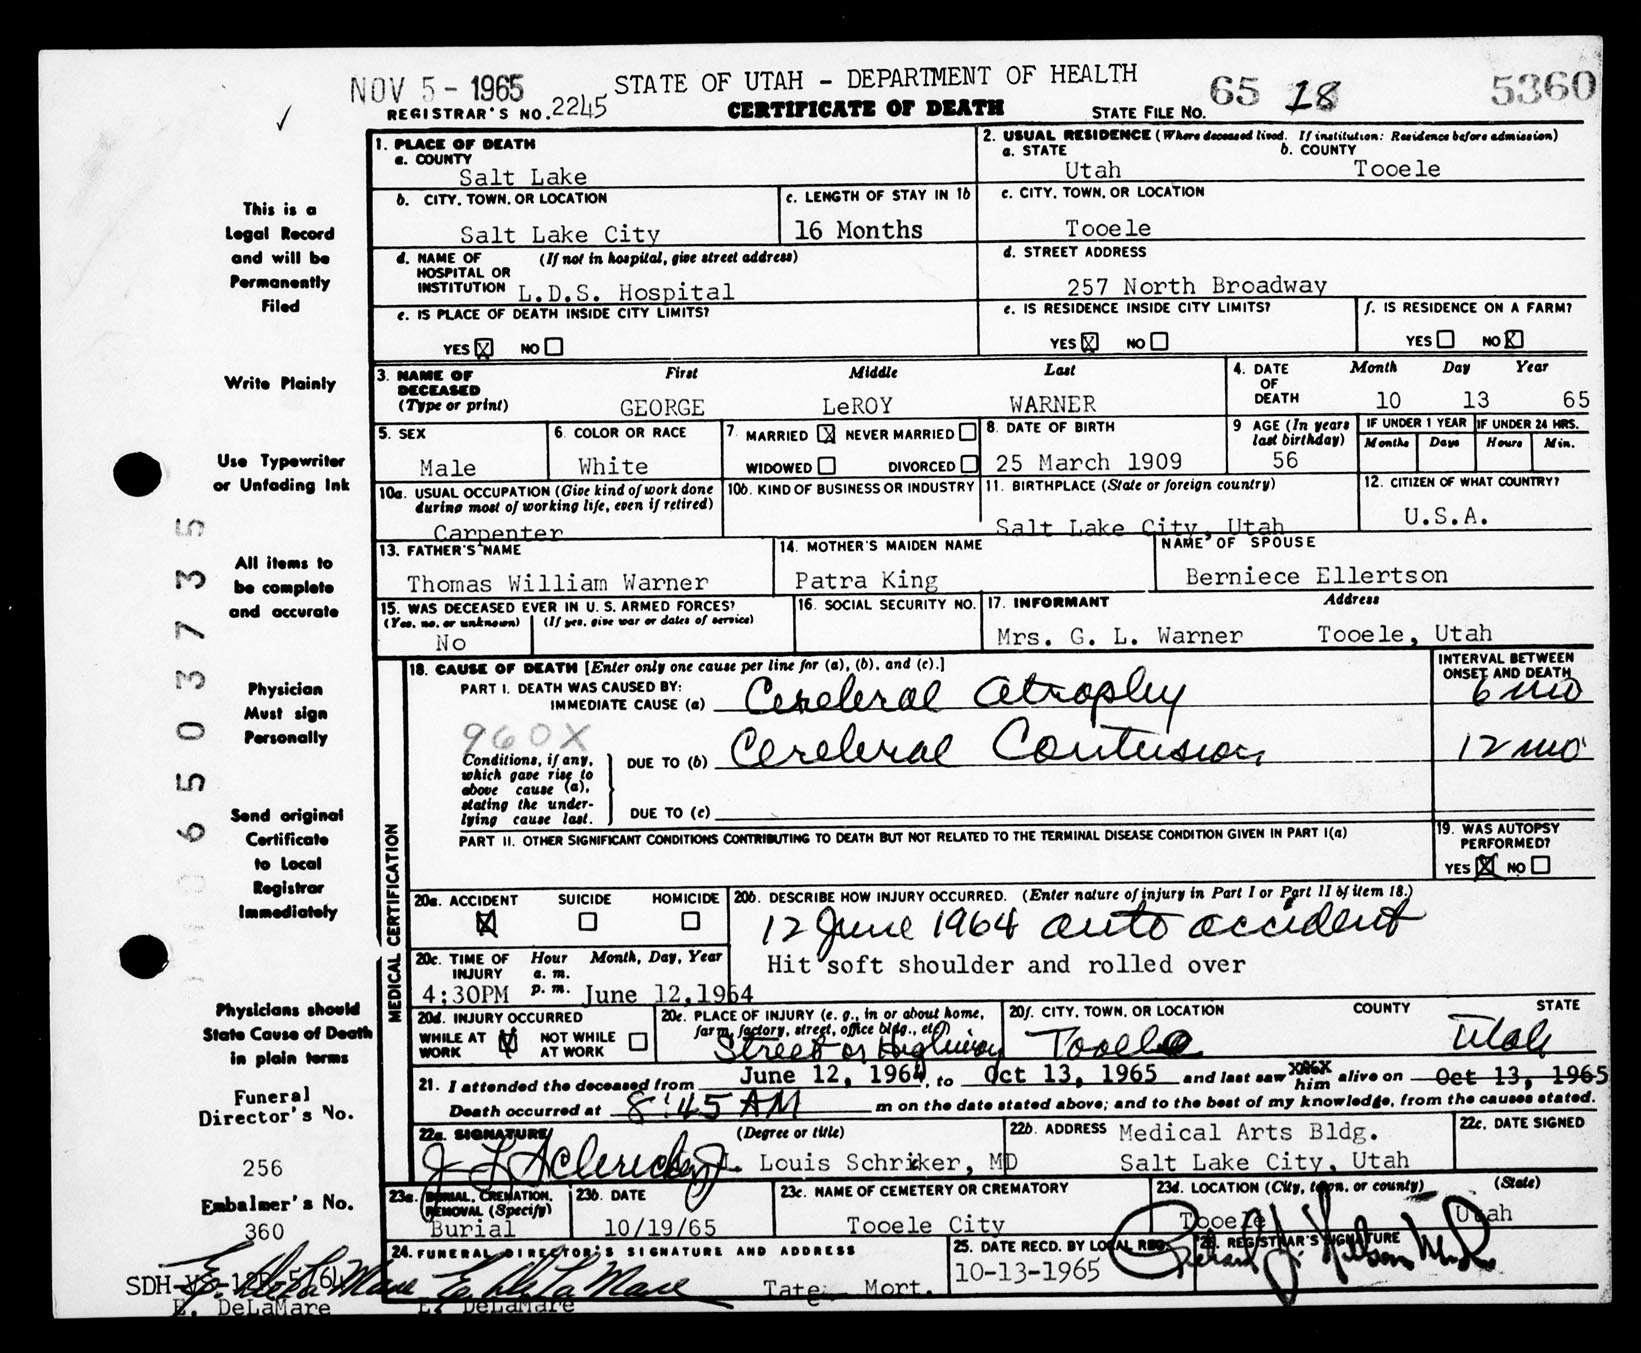 NOV 5 - 1965
STATE OF UTAH - DEPARTMENT OF HEALTH
65 18 5360
REGISTRAR'S NO. 2245
CERTIFICATE OF DEATH
STATE FILE NO.
This is a
Legal Record
and will be
Permanently
Filed
Write Plainly
Use Typewriter
or Unfading Ink
All items to
be complete
and accurate
Physician
Must sign
Personally
Send original
Certificate
to Local
Registrar
Immediately
Physicians should
State Cause of Death
in plain terms
Funeral
Director's No.
256
Embalmer's No.
360
E. DeLaMare
E. DeLaMare
065037735
1. PLACE OF DEATH
a. COUNTY
Salt Lake
2. USUAL RESIDENCE (Where deceased lived. If institution: Residence before admission)
a. STATE b. COUNTY
Utah Tooele
b. CITY, TOWN, OR LOCATION
Salt Lake City
c. LENGTH OF STAY IN 1b
16 Months
c. CITY, TOWN, OR LOCATION
Tooele
d. NAME OF (If not in hospital, give street address)
HOSPITAL OR
INSTITUTION L.D.S. Hospital
d. STREET ADDRESS
257 North Broadway
e. IS PLACE OF DEATH INSIDE CITY LIMITS?
YES X NO
e. IS RESIDENCE INSIDE CITY LIMITS?
YES X NO
f. IS RESIDENCE ON A FARM?
YES NO X
3. NAME OF First Middle Last
DECEASED
(Type or print) GEORGE LeROY WARNER
4. DATE Month Day Year
OF
DEATH 10 13 65
5. SEX
Male
6. COLOR OR RACE
White
7. MARRIED X NEVER MARRIED
WIDOWED DIVORCED
8. DATE OF BIRTH
25 March 1909
9 AGE (In years
last birthday)
56
IF UNDER 1 YEAR IF UNDER 24 HRS.
Months Days Hours Min.
10a. USUAL OCCUPATION (Give kind of work done
during most of working life, even if retired)
Carpenter
10b. KIND OF BUSINESS OR INDUSTRY
11. BIRTHPLACE (State or foreign country)
Salt Lake City, Utah
12. CITIZEN OF WHAT COUNTRY?
U.S.A.
13. FATHER'S NAME
Thomas William Warner
14. MOTHER'S MAIDEN NAME
Patra King
NAME OF SPOUSE
Berniece Ellertson
15. WAS DECEASED EVER IN U. S. ARMED FORCES?
(Yes, no, or unknown) (If yes, give war or dates of service)
No
16. SOCIAL SECURITY NO.
17. INFORMANT Address
Mrs. G. L. Warner Tooele, Utah
MEDICAL CERTIFICATION
18. CAUSE OF DEATH [Enter only one cause per line for (a), (b), and (c).]
INTERVAL BETWEEN
ONSET AND DEATH
PART I. DEATH WAS CAUSED BY:
IMMEDIATE CAUSE (a) Cerebral Atrophy 6 mo
960X
Conditions, if any,
which gave rise to
above cause (a),
stating the under-
lying cause last.
DUE TO (b) Cerebral Contusion 12 mo
DUE TO (c)
PART II. OTHER SIGNIFICANT CONDITIONS CONTRIBUTING TO DEATH BUT NOT RELATED TO THE TERMINAL DISEASE CONDITION GIVEN IN PART I(a)
19. WAS AUTOPSY
PERFORMED?
YES X NO
20a. ACCIDENT SUICIDE HOMICIDE
X
20b. DESCRIBE HOW INJURY OCCURRED. (Enter nature of injury in Part I or Part II of item 18.)
12 June 1964 auto accident
Hit soft shoulder and rolled over
20c. TIME OF Hour Month, Day, Year
INJURY a. m.
4:30PM p. m. June 12,1964
20d. INJURY OCCURRED
WHILE AT X NOT WHILE
WORK AT WORK
20e. PLACE OF INJURY (e. g., in or about home,
farm, factory, street, office bldg., etc.)
Street or Highway
20f. CITY, TOWN, OR LOCATION COUNTY STATE
Tooele Utah
21. I attended the deceased from June 12, 1964, to Oct 13, 1965 and last saw him alive on Oct 13, 1965
Death occurred at 8:45 AM m on the date stated above; and to the best of my knowledge, from the causes stated.
22a. SIGNATURE (Degree or title)
J. Louis Schricker, MD
22b. ADDRESS Medical Arts Bldg.
Salt Lake City, Utah
22c. DATE SIGNED
23a. BURIAL, CREMATION,
REMOVAL (Specify)
Burial
23b. DATE
10/19/65
23c. NAME OF CEMETERY OR CREMATORY
Tooele City
23d. LOCATION (City, town, or county) (State)
Tooele Utah
24. FUNERAL DIRECTOR'S SIGNATURE AND ADDRESS
E. DeLaMare Tate Mort.
E. DeLaMare
25. DATE RECD. BY LOCAL REG.
10-13-1965
26. REGISTRAR'S SIGNATURE